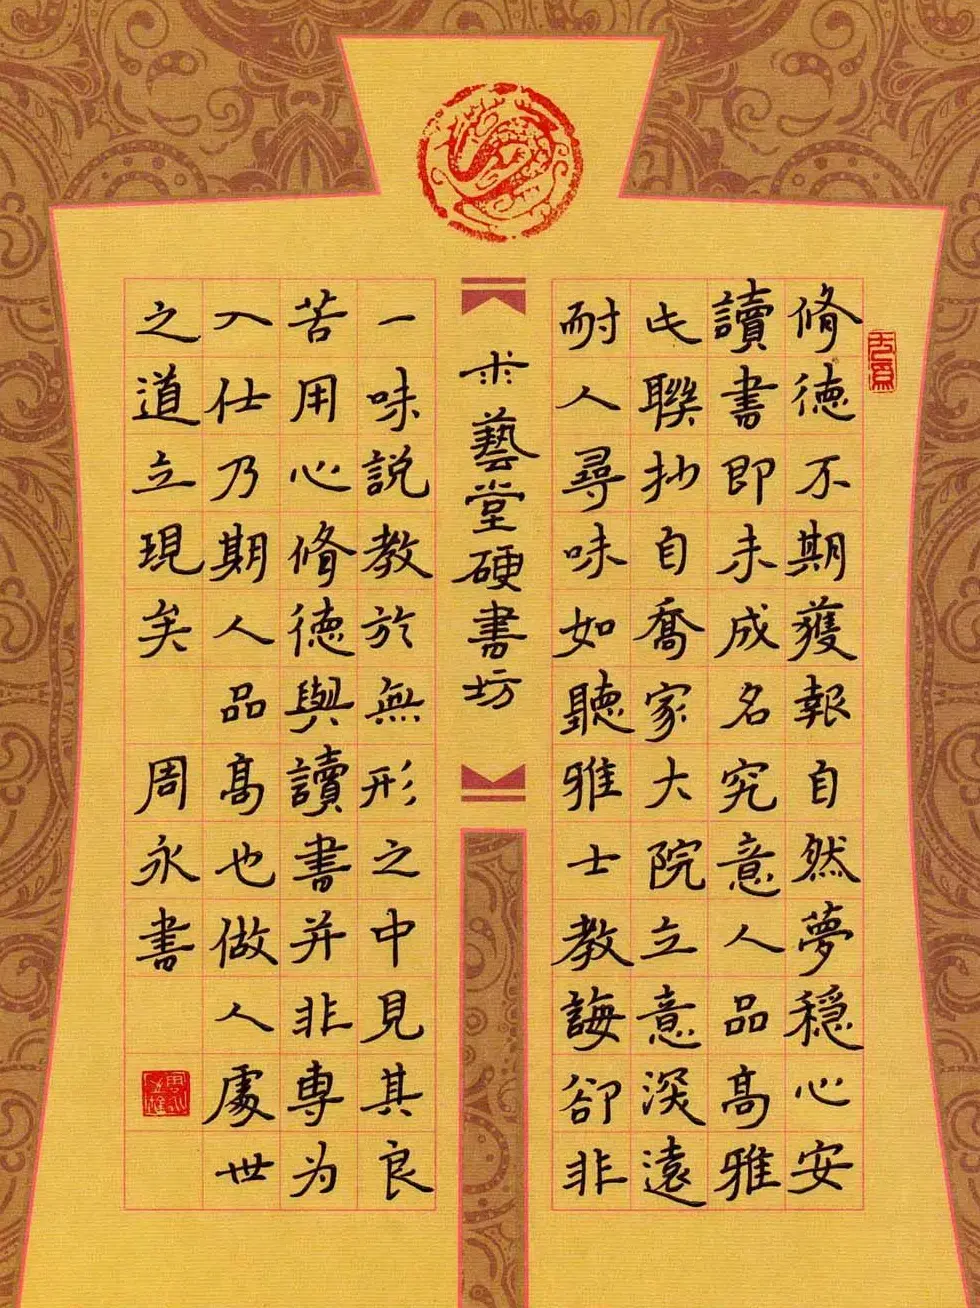 脩德不期獲報自然夢穩心安
讀書即未成名究意人品高雅
此聯抄自喬家大院立意深遠
耐人尋味如聽雅士教誨卻非
术藝堂硬書坊
一味説教於無形之中見其良
苦用心脩德與讀書并非專为
入仕乃期人品高也做人處世
之道立現矣 周永書